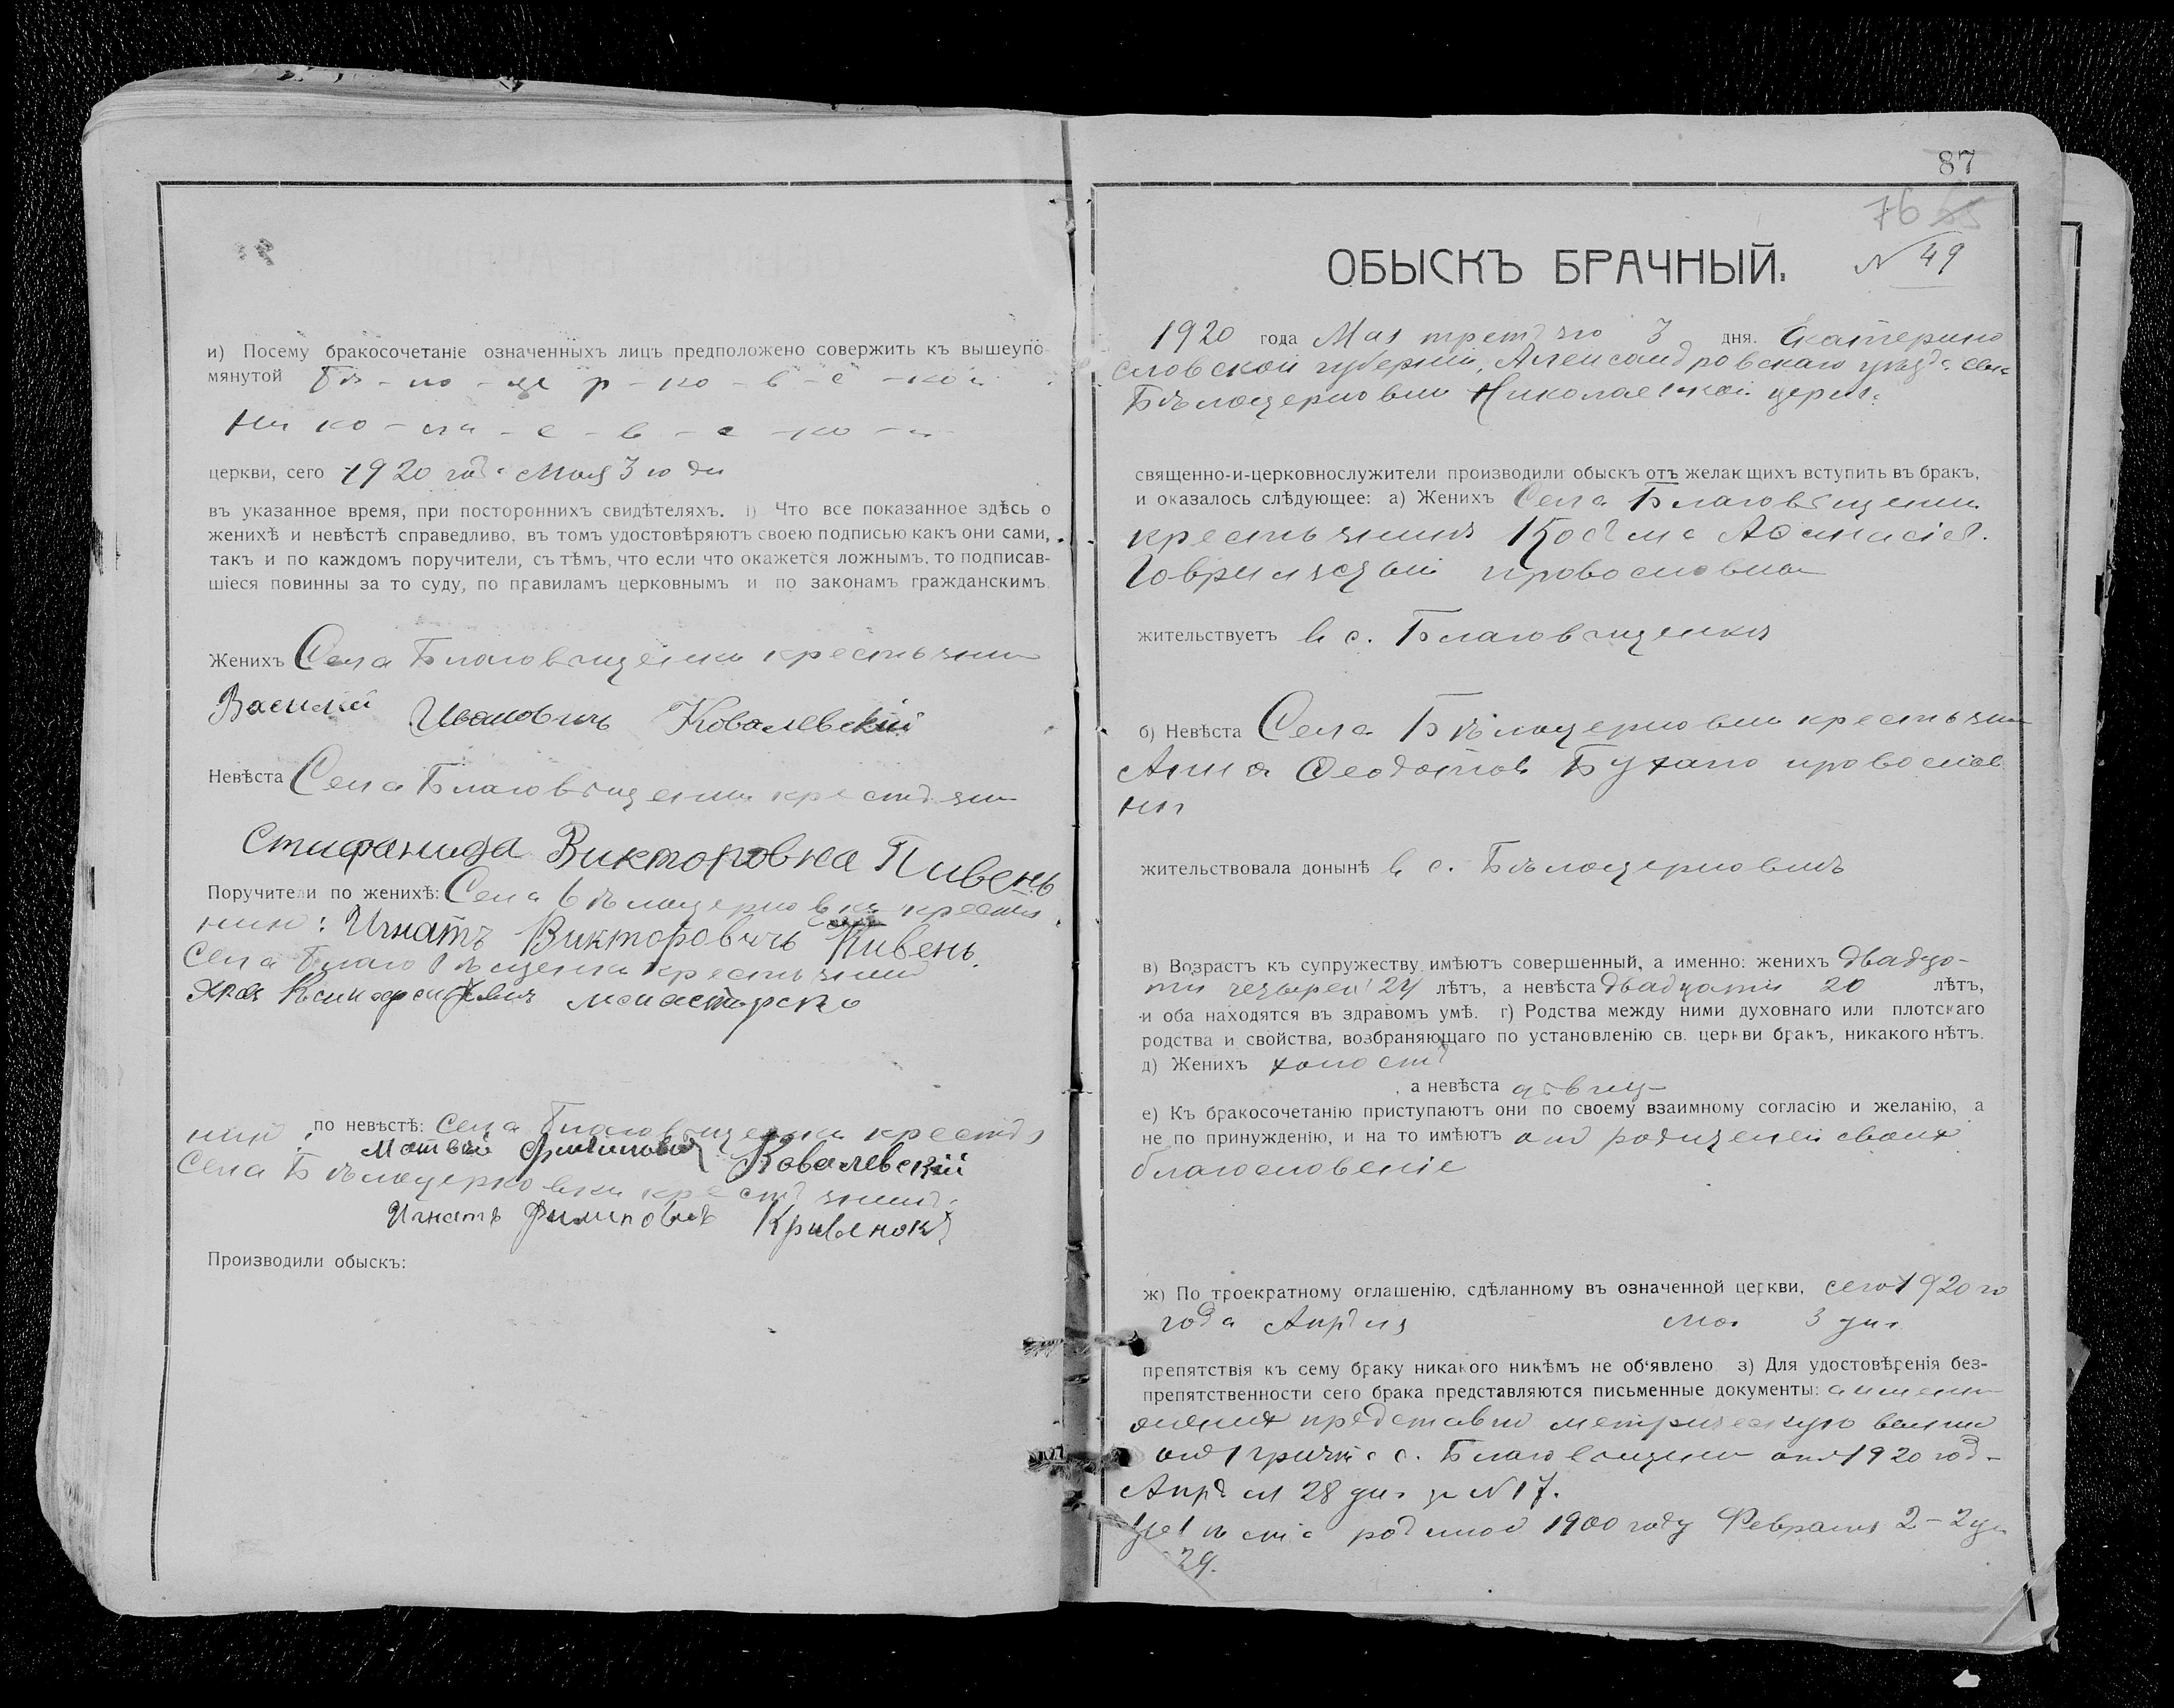 и) Посему бракосочетаніе означенныхъ лицъ предположено совержить къ вышеупо-
мянутой Бѣ-ло-це р-ко-в-с-кой
Ни ко-ла-е-в-с-ко-й
церкви, сего 1920 года Мая 3 го дня
въ указанное время, при постороннихъ свидѣтеляхъ. і) Что все показанное здѣсь о
женихѣ и невѣстѣ справедливо, въ томъ удостовѣряютъ своею подписью какъ они сами,
такъ и по каждомъ поручители, съ тѣмъ, что если что окажется ложнымъ, то подписав-
шіеся повинны за то суду, по правиламъ церковнымъ и по законамъ гражданскимъ.
Женихъ Села Благовѣщенки крестьянин
Василий Ивановичъ Ковалевскій
Невѣста Села Благовѣщенки крестьян
Стифанида Викторовна Пивень
Поручители по женихѣ: Села Бѣлоцерковки крестья
нин: Игнатъ Викторовичъ Пивень.
Села Благовѣщенки крестьянин
монастирско
по невѣстѣ: Села Благовѣщенки крестья
нин: Матвѣй Филиповичъ Ковалевскій
Села Бѣлоцерковки крестьянинъ
Игнатъ Филиповичъ Кривенокъ
Производили обыскъ:
87
76
ОБЫСКЪ БРАЧНЫЙ.
N 49
1920 года Мая третьяго 3 дня. Екатерино
славской губерніи, Александровскаго уѣзда села
Бѣлоцерковки Николаевской церкви
священно-и-церковнослужители производили обыскъ отъ желающихъ вступить въ бракъ,
и оказалось слѣдующее: а) Женихъ Села Благовѣщенки
крестьянинъ Косьма Аѳанасіев.
православна
жительствуетъ в с. Благовѣщенкѣ
б) Невѣста Села Бѣлоцерковки крестьян
Анна Ѳеодотов православ
на
жительствовала донынѣ в с. Бѣлоцерковкѣ
в) Возрастъ къ супружеству имѣютъ совершенный, а именно: женихъ двадца-
ти четырех 24 лѣтъ, а невѣста двадцати 20 лѣтъ,
и оба находятся въ здравомъ умѣ. г) Родства между ними духовнаго или плотскаго
родства и свойства, возбраняющаго по установленію св. церкви бракъ, никакого нѣтъ.
д) Женихъ холостъ
, а невѣста дѣвица
е) Къ бракосочетанію приступаютъ они по своему взаимному согласію и желанію, а
не по принужденію, и на то имѣютъ от родителей своих
благословеніе
ж) По троекратному оглашенію, сдѣланному въ означенной церкви, сего 1920 го
года Апрѣля Мая 3 дня
препятствія къ сему браку никакого никѣмъ не об‘явлено. з) Для удостовѣренія без-
препятственности сего брака представляются письменные документы: а именно
жених представил метрическую
от причта с. Благовѣщенки от 1920 года
Апрѣля 28 дня за N 17.
Невѣста 1900 году Февраля 2-2 дня
29.